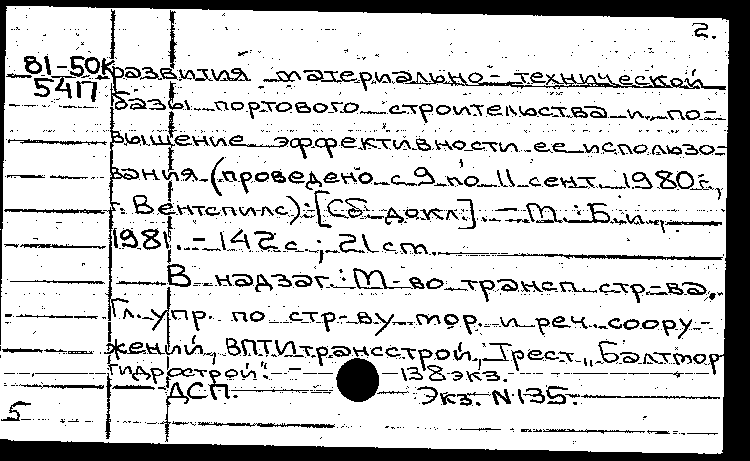 2.
81-50К развития материально-технической
5417 базы портового строительства и по-
вышение эффективности ее использо-
вания (проведено с 9 по 11 сент. 1980 г.,
г. Вентспилс): [Сб. докл.]. - М.: Б.и.,
1981. - 142 с.; 21 см.
В надзаг.: М-во трансп. стр-ва.
Гл. упр. по стр-ву мор. и реч. соору-
жений, ВПТИтрансстрой, Трест „Балтмор
гидрострой". - 138 экз.
ДСП. Экз. N 135.
5